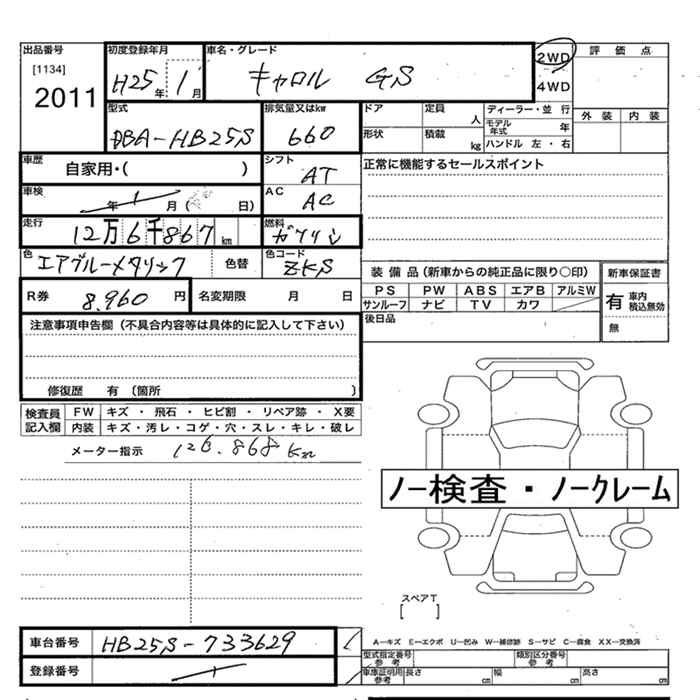 出品番号 初度登録年月 車名・グレード 2WD 評価点
[1134] 2011 H25年 1月 キャロル GS 4WD
型式 排気量又はkw ドア 定員 人 ディーラー・並行 外装 内装
DBA-HB25S 660 形状 積載 kg モデル年式 年 ハンドル 左・右
車歴 自家用・( ) シフト AT 正常に機能するセールスポイント
車検 年 月 ( 日) AC AC
走行 12万6千867km 燃料 ガソリン
色 エアブルーメタリック 色替 色コード ZKS 装備品(新車からの純正品に限り○印) 新車保証書
R券 8,960 円 名変期限 月 日 PS PW ABS エアB アルミW 有 車内積込無効
サンルーフ ナビ TV カワ
注意事項申告欄(不具合内容等は具体的に記入して下さい) 後日品 無
修復歴 有 (箇所 )
検査員記入欄 FW キズ・飛石・ヒビ割・リペア跡・X要
内装 キズ・汚レ・コゲ・穴・スレ・キレ・破レ
メーター指示 126.868 Km
ノー検査・ノークレーム
スペアT
[ ]
車台番号 HB25S-733629 A-キズ E-エクボ U-凹み W-補修跡 S-サビ C-腐食 XX-交換済
型式指定番号 参考 類別区分番号 参考
登録番号 車庫証明用 参考 長さ cm 幅 cm 高さ cm